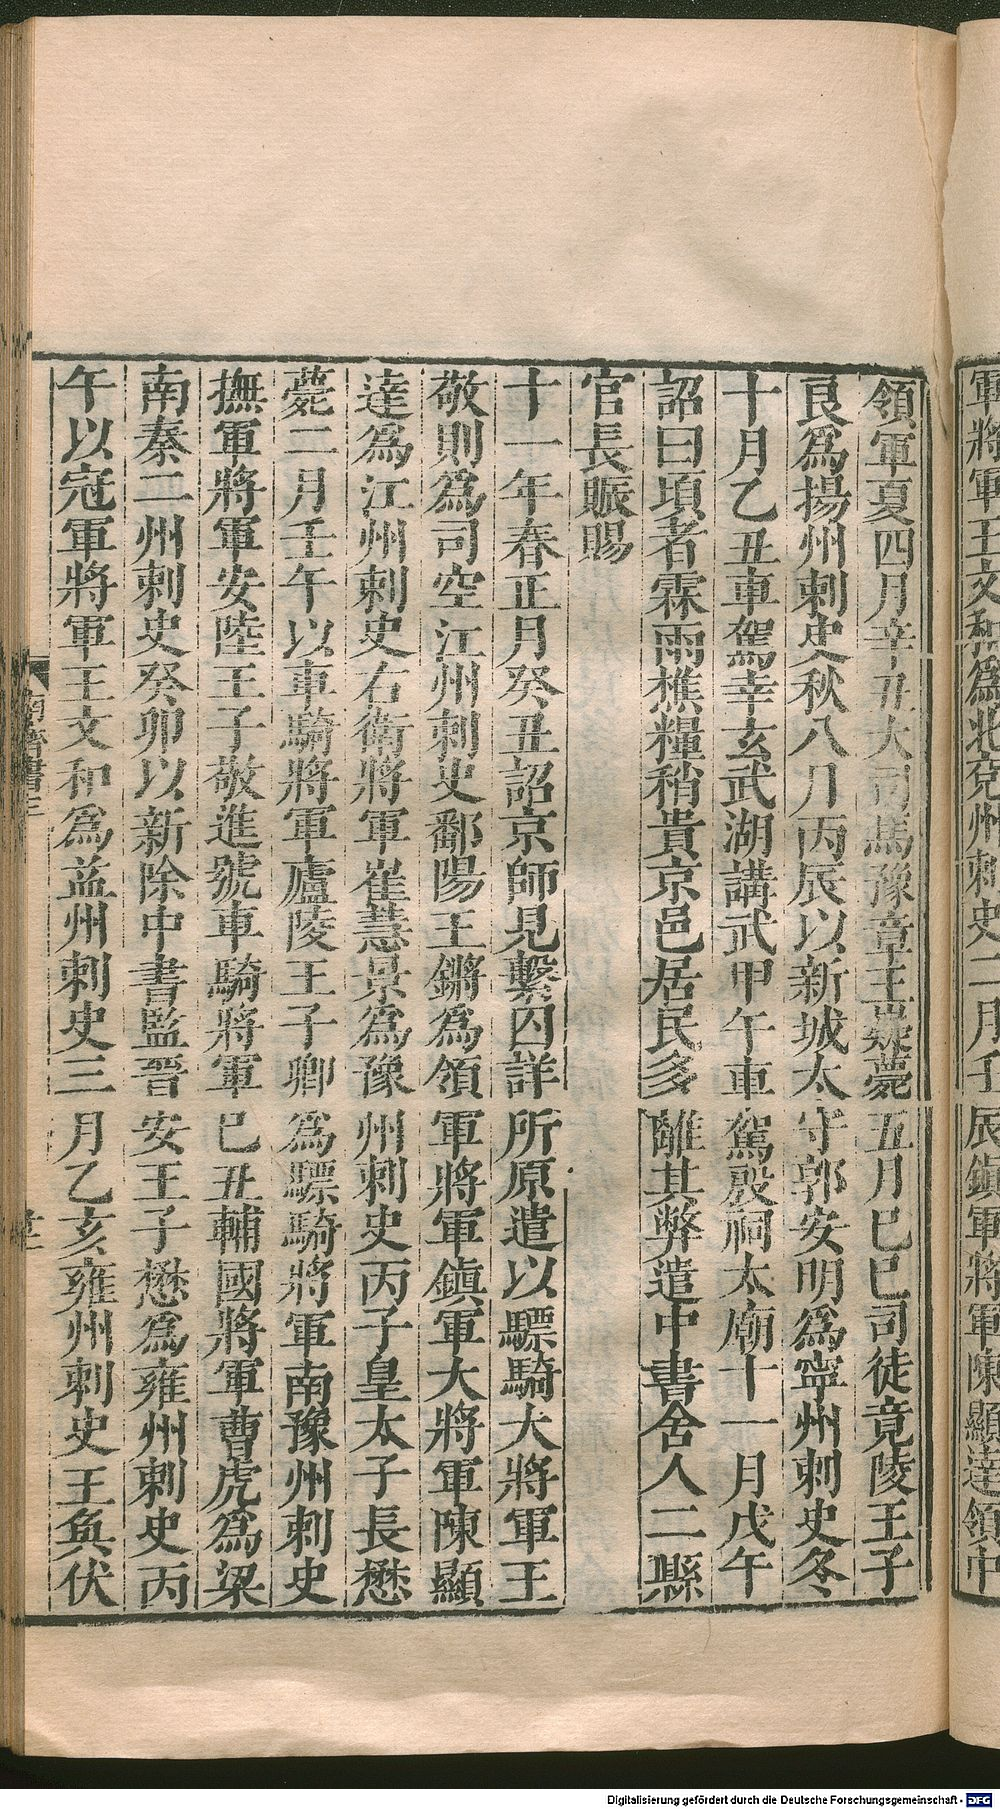 軍將軍王文和爲北兗州刺史二月壬辰鎭軍將軍陳顯達領中
領軍夏四月辛丑大司馬豫章王嶷薨五月己巳司徒竟陵王子
良爲揚州刺史秋八月丙辰以新城太守郭安明爲寧州刺史冬
十月乙丑車駕幸玄武湖講武甲午車駕殷祠太廟十一月戊午
詔曰頃者霖雨樵糧稍貴京邑居民多離其弊遣中書舍人二縣
官長賑賜
十一年春正月癸丑詔京師見繫囚詳所原遣以驃騎大將軍王
敬則爲司空江州刺史鄱陽王鏘爲領軍將軍鎭軍大將軍陳顯
達爲江州刺史右衛將軍崔慧景爲豫州刺史丙子皇太子長懋
薨二月壬午以車騎將軍廬陵王子卿爲驃騎將軍南豫州刺史
撫軍將軍安陸王子敬進號車騎將軍己丑輔國將軍曹虎爲梁
南秦二州刺史癸卯以新除中書監晉安王子懋爲雍州刺史丙
午以冠軍將軍王文和爲益州刺史三月乙亥雍州刺史王奐伏
南齊書三
Digitalisierung gefördert durch die Deutsche Forschungsgemeinschaft - DFG